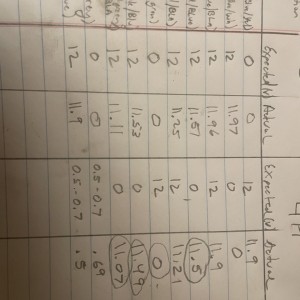 Expected(v) Actual Expected(v) Actual
0 0 12 11.9
12 11.97 0 0
12 11.96 12 11.9
12 11.57 0 11.5
12 11.25 12 11.21
0 0 12 0
12 11.53 0 11.49
12 11.11 0 11.07
0 0 0.5-0.7 .69
12 11.9 0.5-0.7 .5